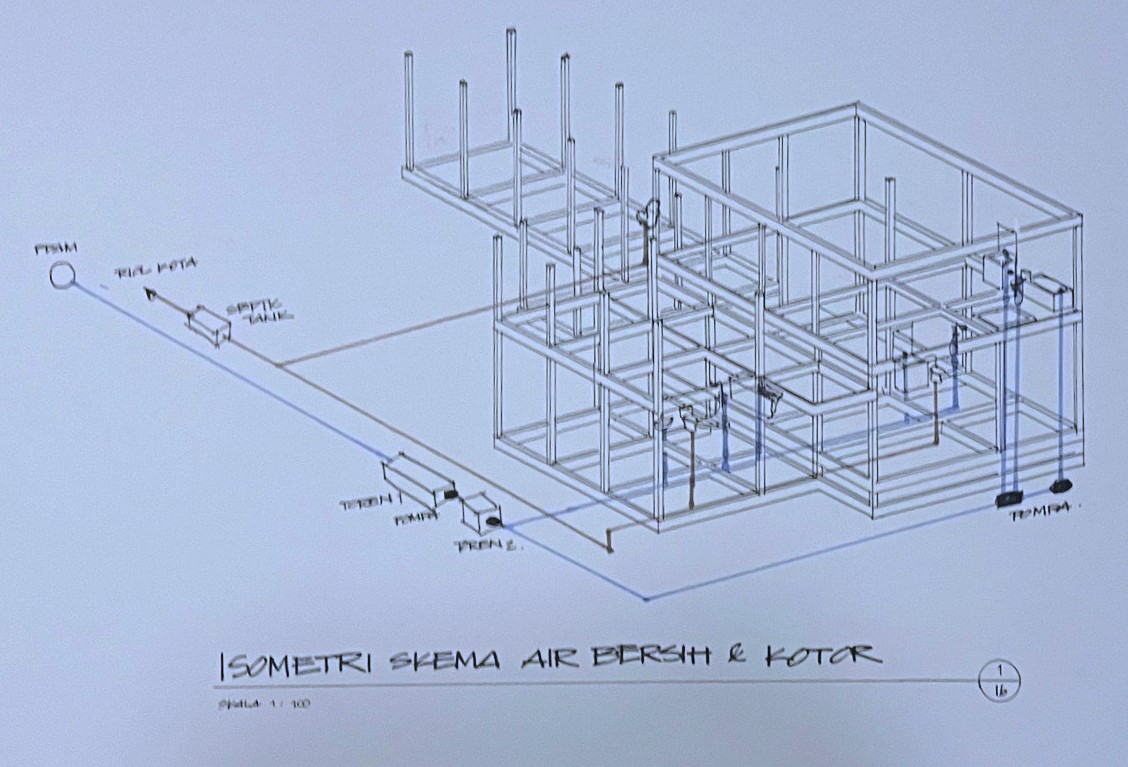 PDAM
RIOL KOTA
SEPTIK
TANK
TOREN 1
POMPA
TOREN 2.
POMPA.
ISOMETRI SKEMA AIR BERSIH & KOTOR
1
16
SKALA 1 / 100